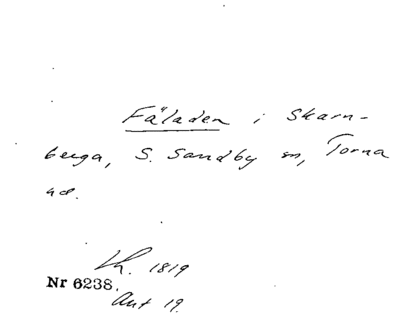 Fäladen i Skarn-
berga, S. Sandby sn, Torna
hd.
Lh. 1819
Nr 6238.
Akt 19.